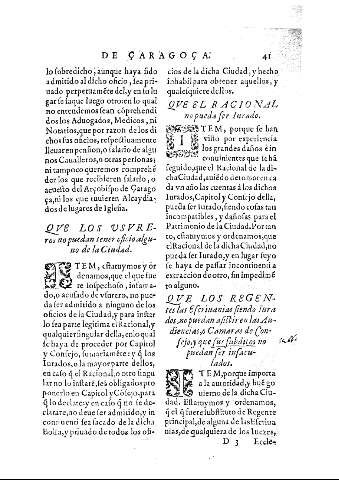 DE ÇARAGOÇA. 41
lo sobredicho; aunque haya sido
admitido al dicho oficio, sea pri-
nado perpetuaméte del, y en su lu
gar se saque luego otro: en lo qual
no entendemos sean cóprehendi
dos los Aduogados, Medicos, ni
Notarios, que por razon de los di
chos sus oficios, respectiuamente
lleuaren pension, o salario de algu
nos Caualleros, o otras personas;
ni tampoco queremos comprehé
der los que recibieren salario, o
acuesto del Arçobispo de Çarago
ça, ni los que tuuieren Alcaydia-
dos de lugares de Iglesia.
QVE LOS VSVRE-
ros no puedan tener oficio algu-
no de la Ciudad.
ITEM, estatuymos y or
denamos, que el que fue
re sospechoso, infama-
do, o acusado de vsurero, no pue-
da ser admitido a ninguno de los
oficios de la Ciudad, y para instar
lo sea parte legitima el Racional, y
qualquier singular della, en lo qual
se haya de proceder por Capitol
y Consejo, sumariaméte: y si los
Iurados, o la mayor parte dellos,
en caso q̃ el Racional, o otro singu
lar no lo instaré, sea obligados pro
ponerlo en Capitol y Cósejo, para
q̃ lo declare: y en caso q̃ no se de-
clarare, no deue ser admitido, y in
continenti sea sacado de la dicha
Bolsa, y priuado de todos los ofi-
cios de la dicha Ciudad, y hecho
inhabil para obtener aquellos, y
qualesquiere dellos.
QVE EL RACIONAL
no pueda ser Iurado.
ITEM, porque se han
visto por experiencia
los grandes daños e in
conuinientes que se há
seguido, que el Racional de la di-
cha Ciudad, auiédo de tomar cara
da vn año las cuentas a los dichos
Iurados, Capitol y Consejo della,
pueda ser Iurado, siendo cosas tan
incompatibles, y dañosas para el
Patrimonio de la Ciudad. Por tan
to, estatuymos y ordenamos, que
el Racional de la dicha Ciudad, no
pueda ser Iurado, y en lugar suyo
se haya de passar incontinenti a
extraccion de otro, sin impedimé
to alguno.
QVE LOS REGEN-
tes las Escriuanias siendo Iura
dos, no puedan assistir en las Au
diencias, o Camaras de Con-
sejo, y que sus substitutos no
puedan ser insacu-
lados.
ITEM, porque importa
a la autoridad, y bué go
uierno de la dicha Ciu-
dad. Estatuymos y ordenamos,
q̃ el q̃ fuere substituto de Regente
principal, de alguna de las Escriua
nias, de qualquiera de los Iuezes,
D 3 Eccle-